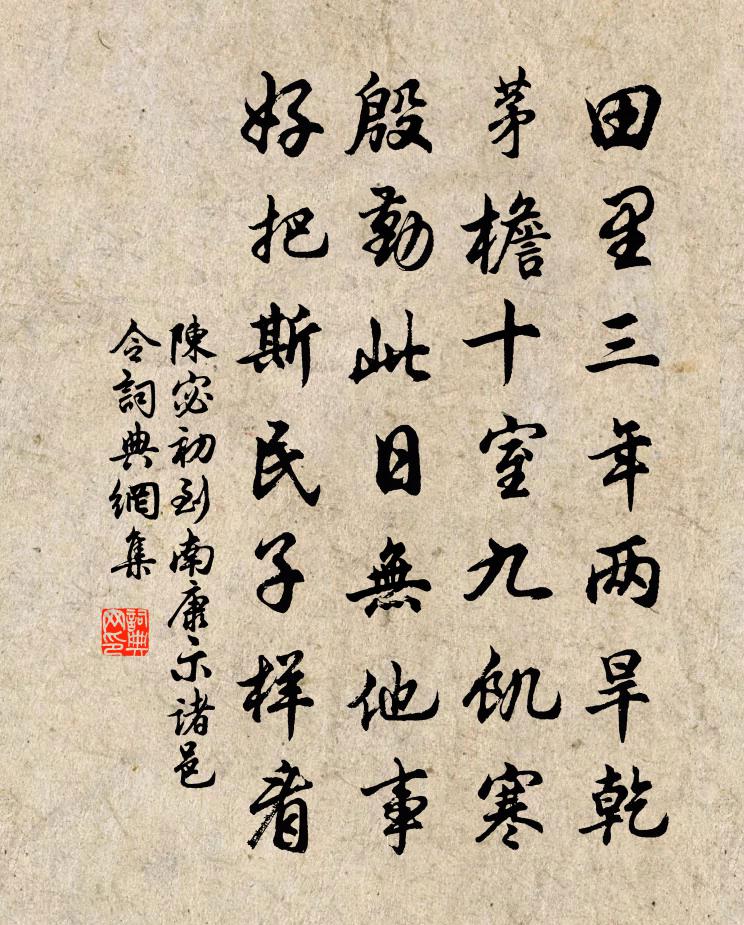 田里三年两旱乾
茅檐十室九飢寒
殷勤此日無他事
好把斯民子样看
陳宓初到南康示諸邑
令詞典網集
詞典网印